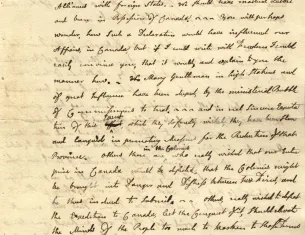 Alliances with foreign States. We shall have mastered Quebec
and been in Possession of Canada. You will perhaps
wonder, how Such a Declaration would have influenced our
Affairs, in Canada but if I could write with Freedom I could
easily convince you, that it would, and explain to you the
manner how. Many Gentlemen in high Stations and
of great Influence have been duped, by the ministerial Bubble
of Commissioners to treat and in real, Sincere Expecta
tion of this Event, which they so fondly wished, they have been slow
and Languid, in promoting Measures for the Reduction of that
Province. Others there are in the Colonies who really wished that our Enter
prise in Canada would be defeated, that the Colonies might
be brought into Danger and Distress between two Fires, and
be thus induced to Submit. others really wished to defeat
the Expedition to Canada, lest the Conquest of it, Should elevate
the Minds of the People too much to hearken to those Terms